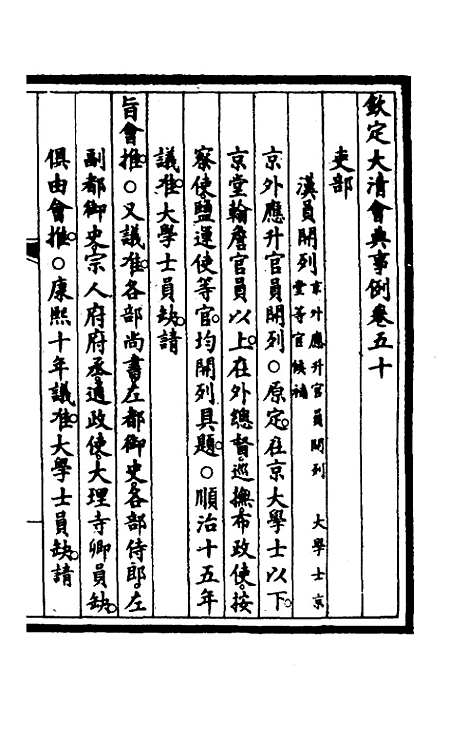 欽定大清會典事例卷五十
吏部
漢員開列 京外應升官員開列 大學士京堂等官候補
京外應升官員開列○原定。在京大學士以下。
京堂翰詹官員以上。在外總督。巡撫。布政使。按
察使。鹽運使等官。均開列具題。○順治十五年
議准。大學士員缺。請
旨會推。○又議准。各部尚書。左都御史。各部侍郎。左
副都御史。宗人府府丞。通政使。大理寺卿員缺。
俱由會推。○康熙十年議准。大學士員缺。請